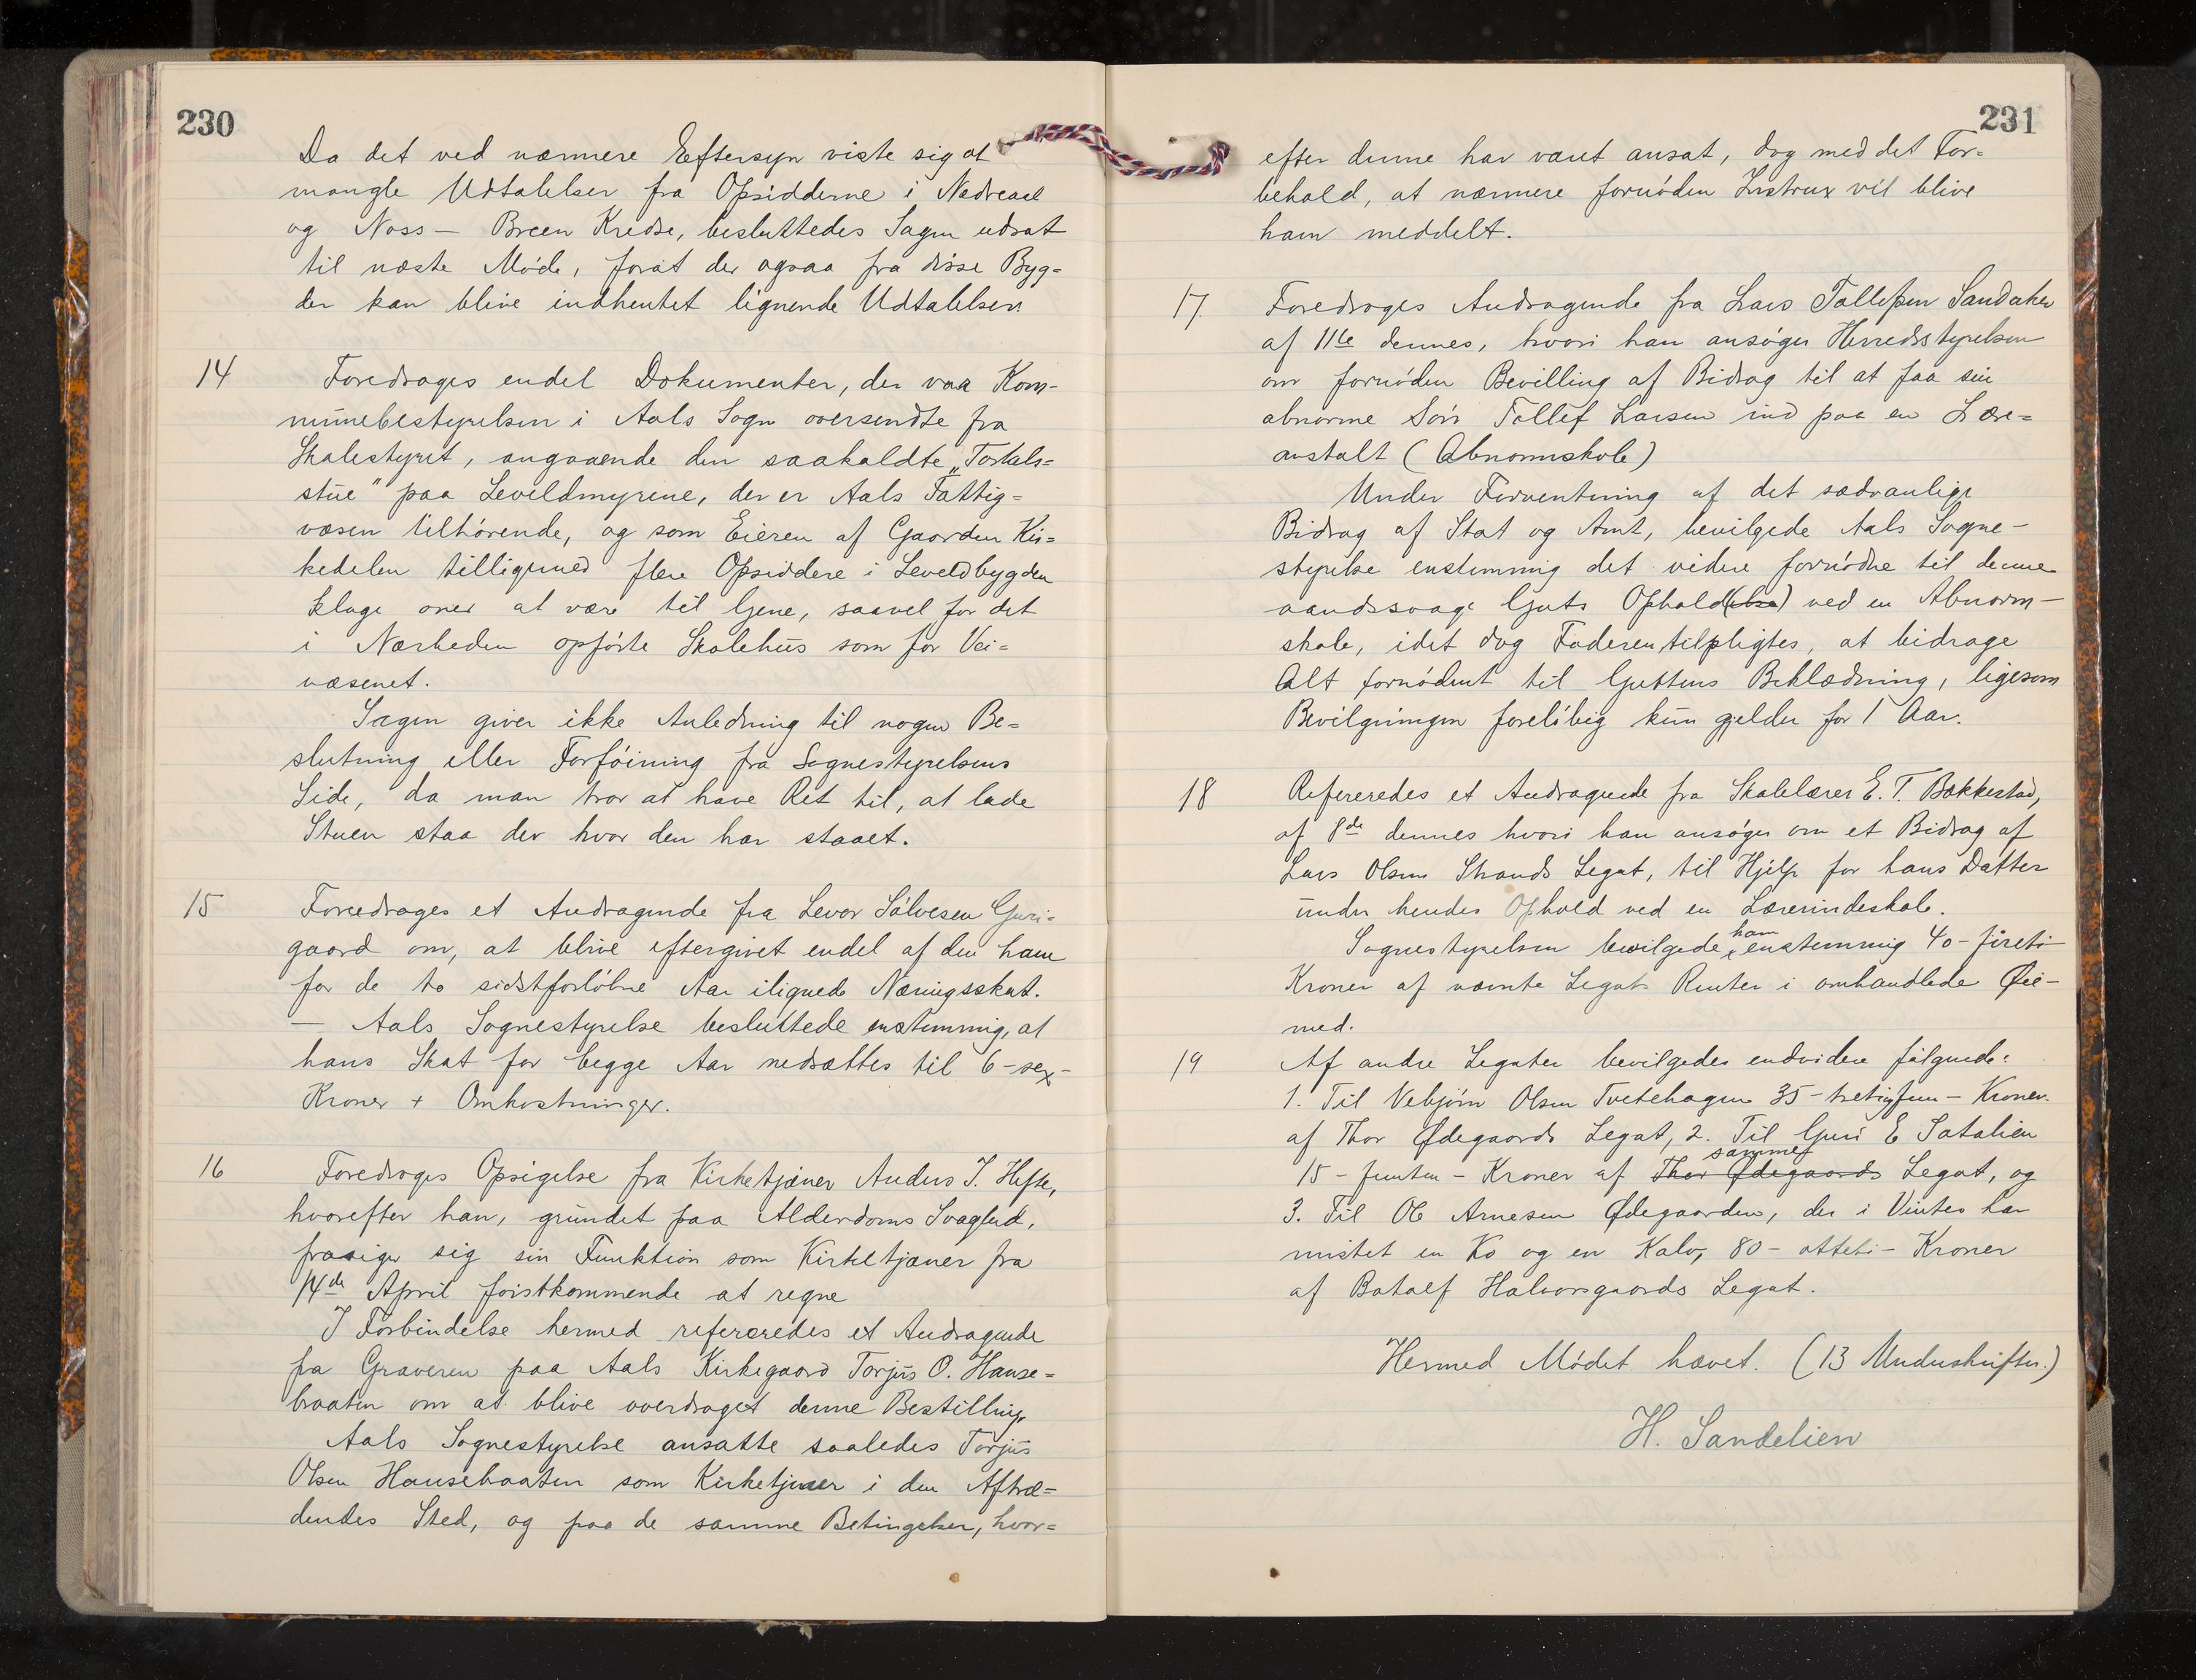 230
Da det ved nærmere Eftersyn viste sig at
mangle Udtalelser fra Opsidderne i Nedreaal
og Noss – Breen Kredse, besluttedes Sagen udsat
til næste Møde, forat der ogsaa fra disse Byg=
der kan blive indhentet lignende Udtalelser.
14
Foredroges endel Dokumenter, der vaa Kom-
munebestyrelsen i Aals Sogn oversendte fra
Skolestyret, angaaende den saakaldte „Torkels=
stue" paa Leveldmyrene, der er Aals Fattig=
væsen tilhørende, og som Eieren af Gaarden Kir=
kedelen tilligemed flere Opsiddere i Leveldbygden
klage over at være til Gene, saavel for det
i Nærheden opførte Skolehus som for Vei=
væsenet.
Sagen giver ikke Anledning til nogen Be=
slutning eller Forføining fra Sognestyrelsens
Side, da man tror at have Ret til, at lade
Stuen staa der hvor den har staaet.
15
Foreedroges et Andragende fra Levor Sølvesen Guri=
gaard om, at blive eftergivet endel af den ham
for de to sidstforløbne Aar ilignede Næringsskat.
— Aals Sognestyrelse besluttede enstemmig, at
hans Skat for begge Aar nedsættes til 6 – sex –
Kroner + Omkostninger.
16
Foredroges Opsigelse fra Kirketjener Anders T. Hefte,
hvorefter han, grundet paa Alderdoms Svaghed,
frasiger sig sin Funktion som Kirketjener fra
14de April førstkommende at regne
I Forbindelse hermed refereredes et Andragende
fra Graveren paa Aals Kirkegaard Torjus O. Hanse=
braaten om at blive overdraget denne Bestilling
Aals Sognestyrelse ansatte saaledes Torjus
Olsen Hansebraaten som Kirketjener i den Aftræ=
dendes Sted, og paa de samme Betingelser, hvor=
231
efter denne har været ansat, dog med det For=
behold, at nærmere fornøden Instrux vil blive
ham meddelt.
17
Foredroges Andragende fra Lars Tollefsen Sandaker
af 11te dennes, hvori han ansøger Herredsstyrelsen
om fornøden Bevilling af Bidrag til at faa sin
abnorme Søn Tollef Larsen ind paa en Lære=
anstalt (Abnormskole)
Under Forventning af det sædvanlige
Bidrag af Stat og Amt, bevilgede Aals Sogne –
styrelse enstemmig det videre fornødne til denne
aandssvage Guts Ophold(else) ved en Abnorm –
skole, idet dog Faderen tilpligtes, at bidrage
Alt fornødent til Guttens Beklædning, ligesom
Bevilgningen foreløbig kun gjelder for 1 Aar.
18
Refereredes et Andragende fra Skolelærer E. T. Bakkestad,
af 8de dennes hvori han ansøger om et Bidrag af
Lars Olsens Strands Legat, til Hjelp for hans Datter
under hendes Ophold ved en Lærerindeskole.
Sognestyrelsen bevilgede ham enstemmig 40 – fireti
Kroner af nævnte Legats Renter i omhandlede Øie –
med.
19
Af andre Legater bevilgedes endvidere følgende:
1. Til Vebjørn Olsen Tvetehagen 35 – tretigfem – Kroner.
af Thor Ødegaards Legat, 2. Til Guri E Sataliën
15 – femten – Kroner af Thor Ødegaards sammes Legat, og
3. Til Ole Arnesen Ødegaarden, der i Vinter har
mistet en Ko og en Kalv, 80 – otteti – Kroner
af Botolf Halvorsgaards Legat.
Hermed Mødet hævet. (13 Underskrifter.)
H. Sandelien